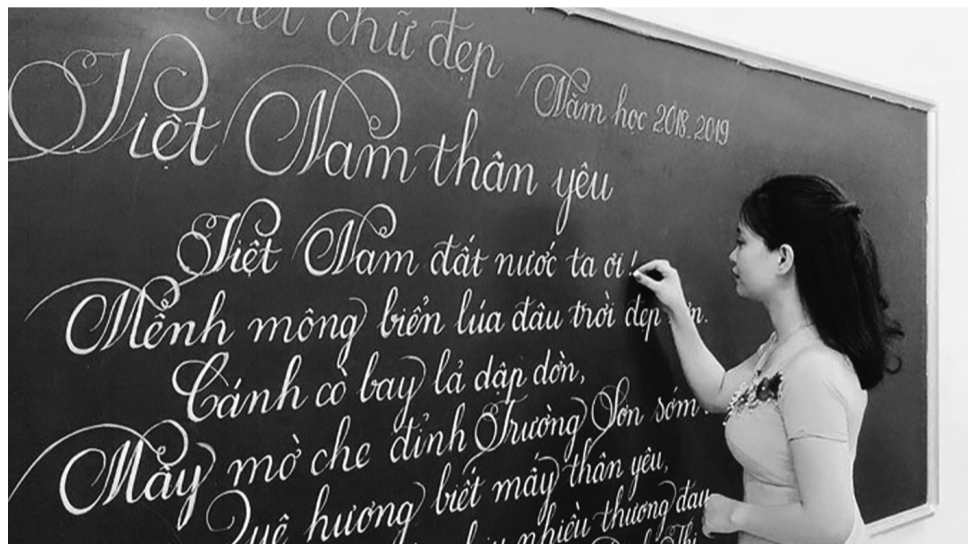 Viết chữ đẹp
Năm học 2018-2019
Việt Nam thân yêu
Việt Nam đất nước ta ơi!
Mênh mông biển lúa đâu trời đẹp
Cánh cò bay lả dập dờn,
Mây mờ che đỉnh Trường Sơn sớm
Quê hương biết mấy thân yêu,
nhiều thương đau